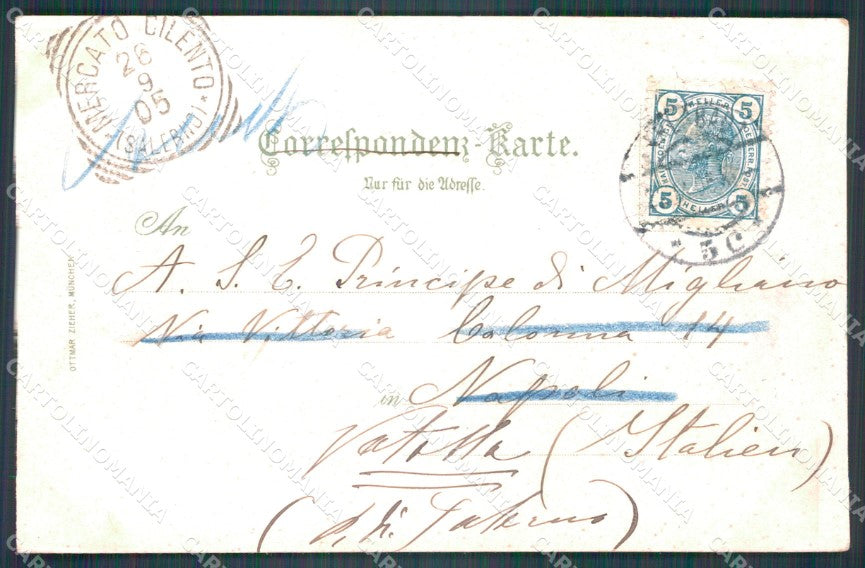 MERCATO CILENTO
26
9
05
(SALERNO)
Correspondenz-Karte.
Nur für die Adresse.
5 HELLER 5
5 HELLER 5
5 C
An
A. S. E. Principe di Migliano
Via Vittoria Colonna 14
in Napoli
Vatolla (Italien)
OTTMAR ZIEHER, MÜNCHEN
CARTOLINOMANIA